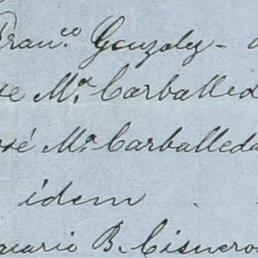 Franco Gonzalez -
se Ma Carballed
osé Ma Carballeda
idem
acario B. Cisneros